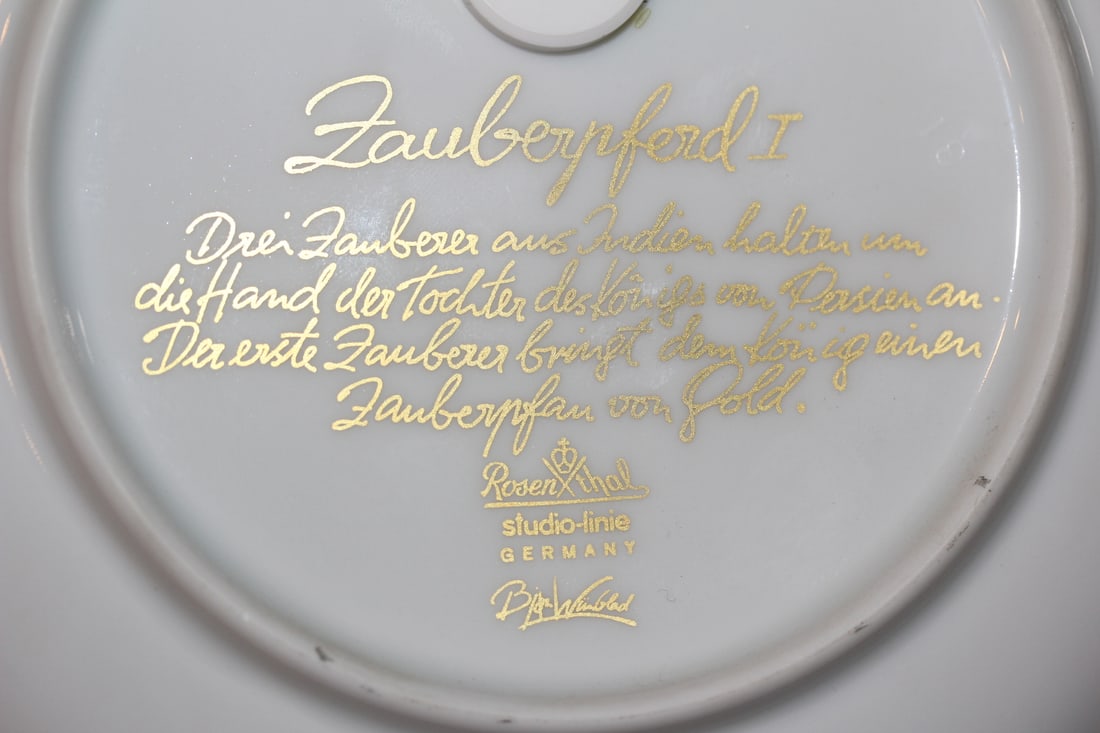 Zauberpferd I
Drei Zauberer aus Indien halten um
die Hand der Tochter des Königs von Persien an.
Der erste Zauberer bringt dem König einen
Zauberpfau von Gold.
Rosenthal
studio-linie
GERMANY
Bjørn Wiinblad